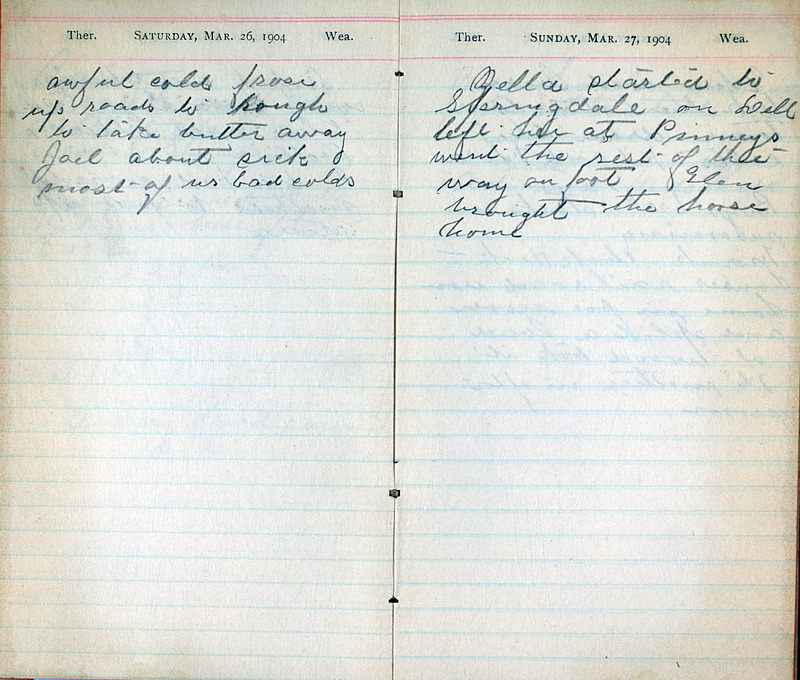 Ther. SATURDAY, MAR. 26, 1904 Wea.
awful cold froze
up roads to rough
to take butter away
Joel about sick
most of us bad colds
Ther. SUNDAY, MAR. 27, 1904 Wea.
Zella started to
Springdale on Dell
left her at Pinneys
went the rest of the
way on foot Glen
brought the horse
home